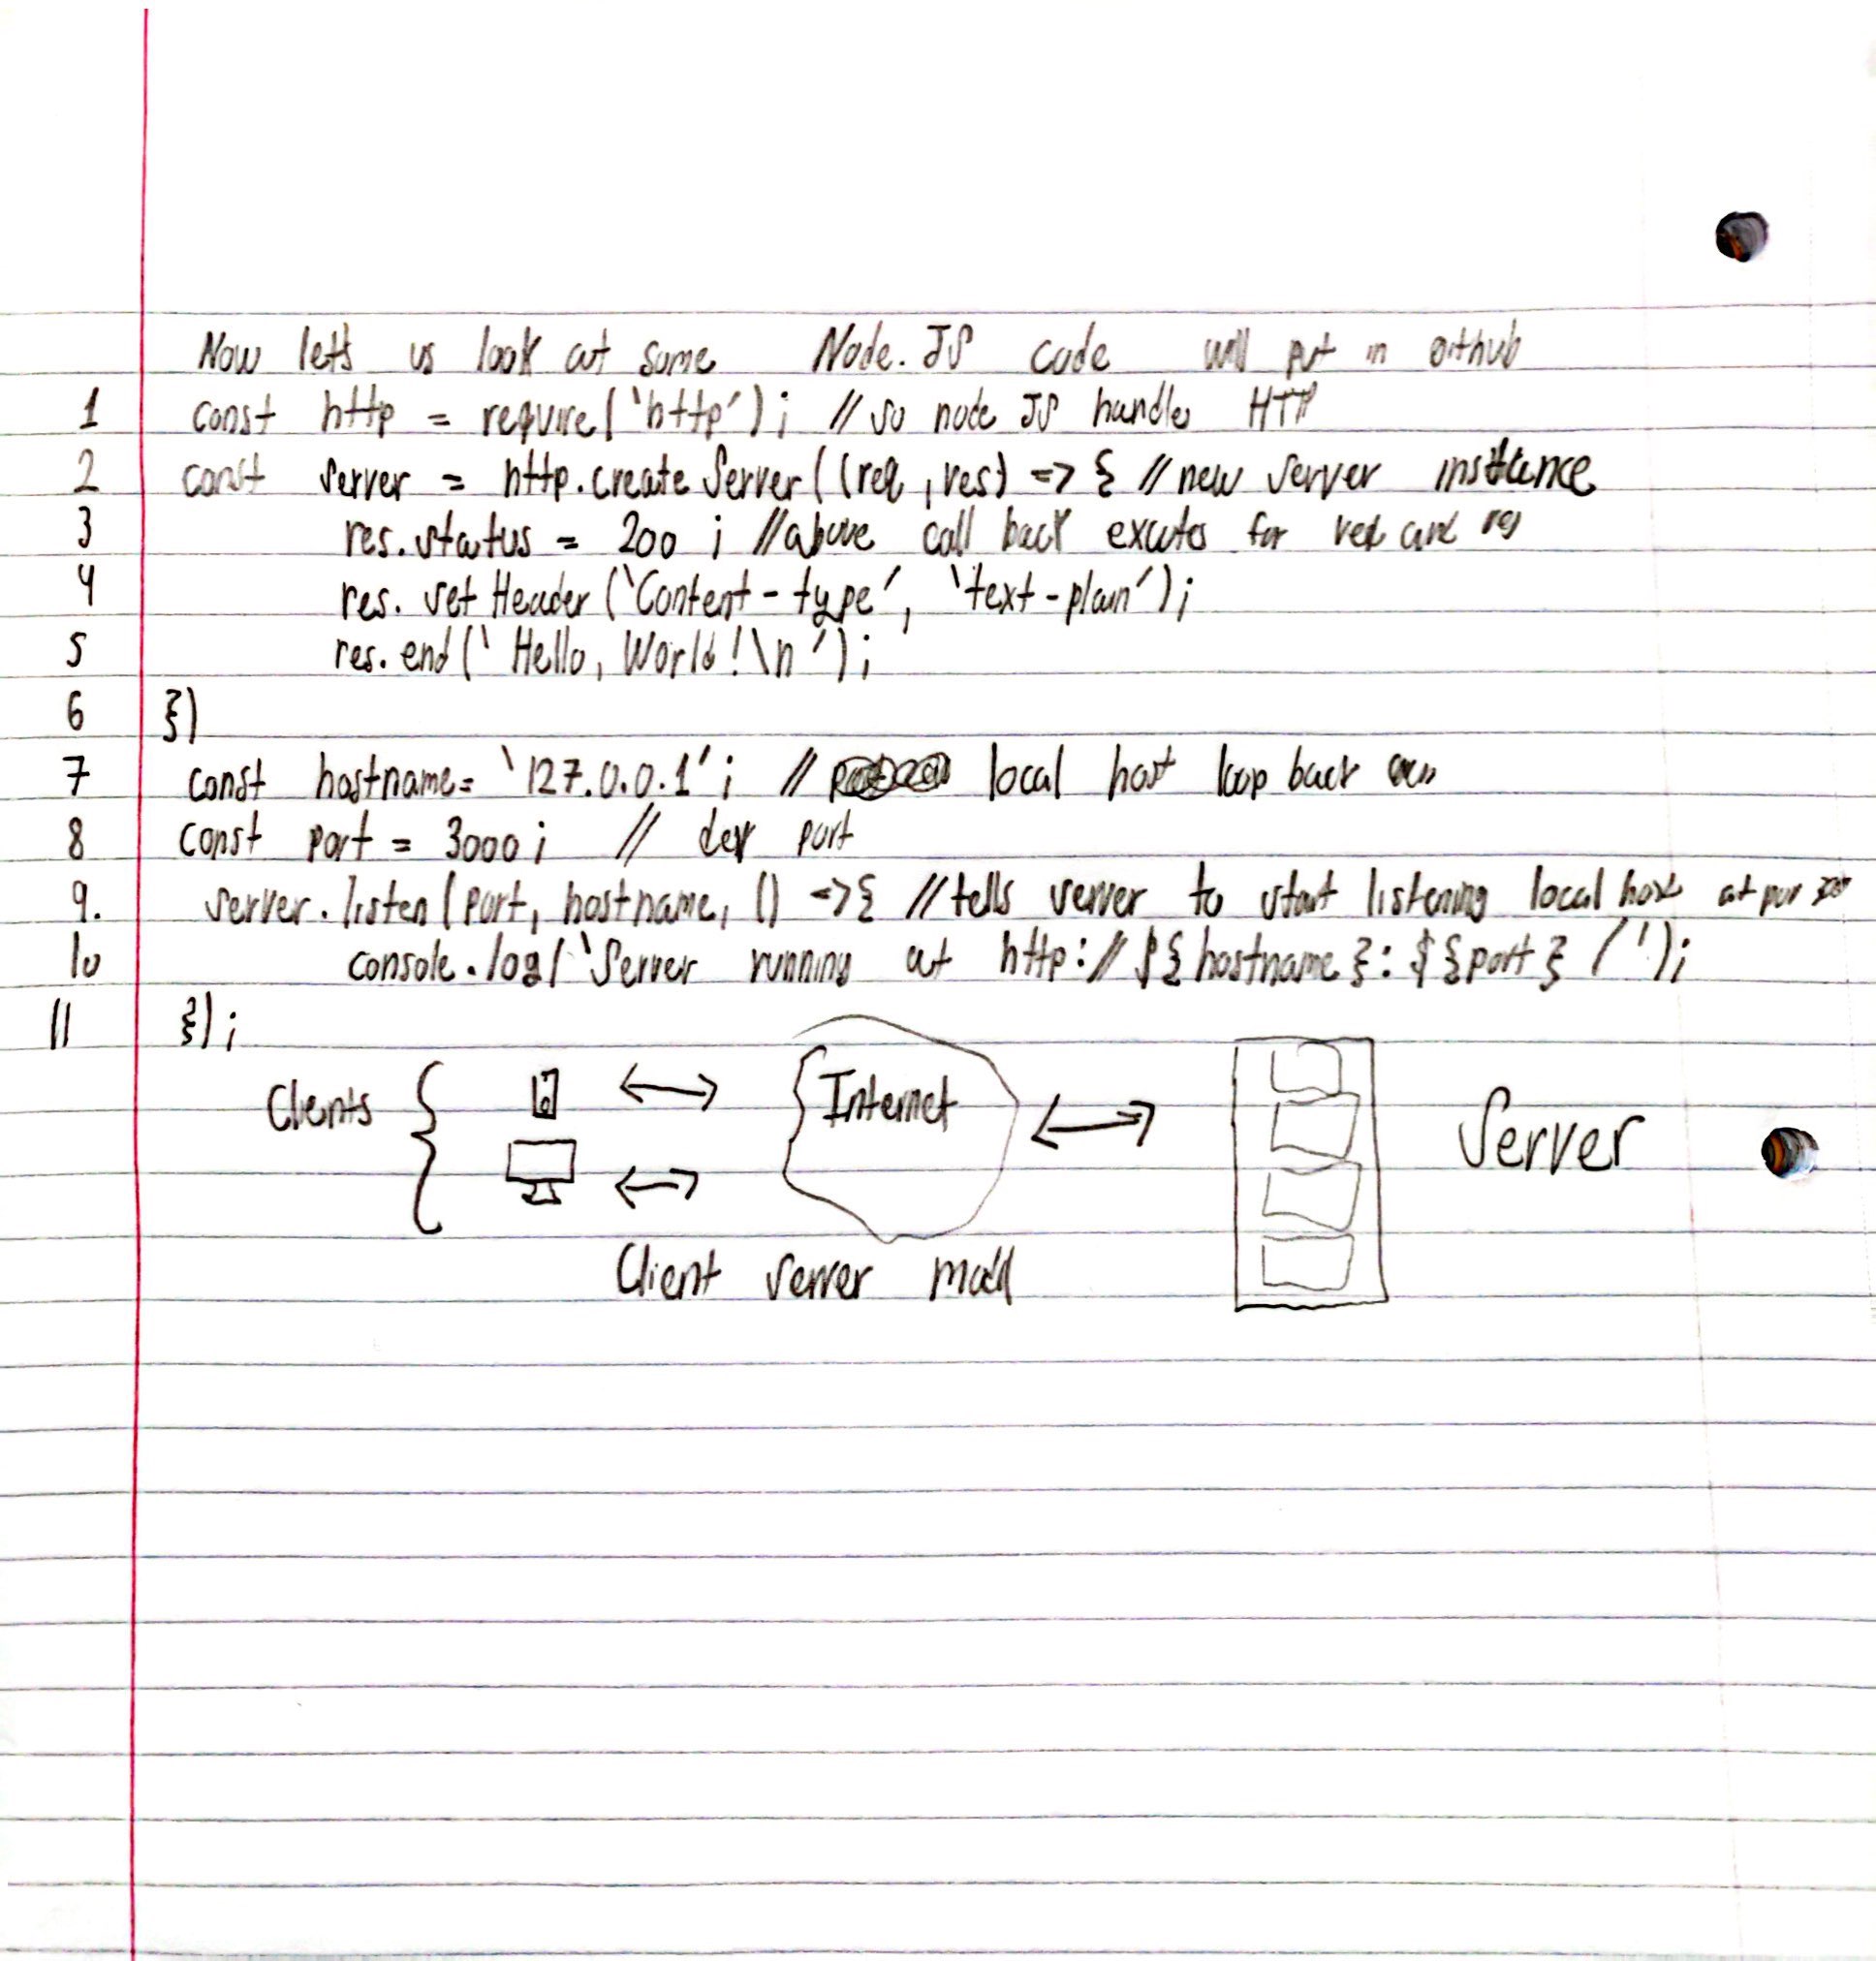 Now lets us look at some Node.JS code will put in Github
1 const http = require(`http'); // so node JS handles HTTP
2 const server = http.createServer((req, res) => { // new server instance
3 res.status = 200; // above call back excutes for req and res
4 res.setHeader(`Content-type', `text-plain');
5 res.end(`Hello, World!\n');
6 })
7 const hostname= `127.0.0.1'; // local host loop back
8 const port = 3000; // dev port
9. server.listen(port, hostname, () => { // tells server to start listening local host at
10 console.log(`Server running at http://${hostname}:${port}/');
11 });
Clients
Internet
Server
Client server